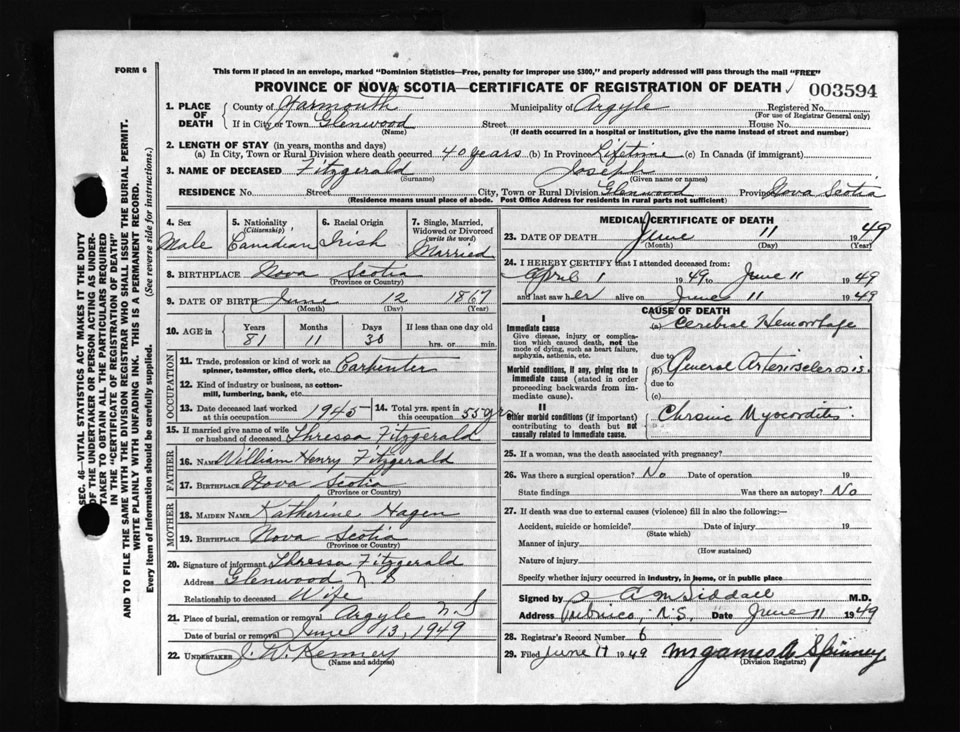 FORM 6
This form if placed in an envelope, marked "Dominion Statistics—Free, penalty for improper use $300," and properly addressed will pass through the mail "FREE"
PROVINCE OF NOVA SCOTIA—CERTIFICATE OF REGISTRATION OF DEATH
003594
1. PLACE OF DEATH
County of Yarmouth Municipality of Argyle Registered No.
(For use of Registrar General only)
If in City or Town Glenwood Street House No.
(Name) (If death occurred in a hospital or institution, give the name instead of street and number)
2. LENGTH OF STAY (in years, months and days)
(a) In City, Town or Rural Division where death occurred 40 years (b) In Province Lifetime (c) In Canada (if immigrant)
3. NAME OF DECEASED Fitzgerald Joseph
(Surname) (Given name or names)
RESIDENCE No Street City, Town or Rural Division Glenwood Province Nova Scotia
(Residence means usual place of abode. Post Office Address for residents in rural parts not sufficient)
4. Sex
Male
5. Nationality
(Citizenship)
Canadian
6. Racial Origin
Irish
7. Single, Married, Widowed or Divorced
(write the word)
Married
8. BIRTHPLACE Nova Scotia
(Province or Country)
9. DATE OF BIRTH June 12 1867
(Month) (Day) (Year)
10. AGE in
Years Months Days If less than one day old
81 11 30 hrs. or min.
OCCUPATION
11. Trade, profession or kind of work as spinner, teamster, office clerk, etc. Carpenter
12. Kind of industry or business, as cotton-mill, lumbering, bank, etc.
13. Date deceased last worked at this occupation 1945
14. Total yrs. spent in this occupation 55 yrs
15. If married give name of wife or husband of deceased Thressa Fitzgerald
FATHER
16. NAME William Henry Fitzgerald
17. BIRTHPLACE Nova Scotia
(Province or Country)
MOTHER
18. MAIDEN NAME Katherine Hagen
19. BIRTHPLACE Nova Scotia
(Province or Country)
20. Signature of informant Thressa Fitzgerald
Address Glenwood N S
Relationship to deceased Wife
21. Place of burial, cremation or removal Argyle N S
Date of burial or removal June 13, 1949
22. UNDERTAKER J. W. Kenney
(Name and address)
MEDICAL CERTIFICATE OF DEATH
23. DATE OF DEATH June 11 1949
(Month) (Day) (Year)
24. I HEREBY CERTIFY that I attended deceased from:
April 1 1949 to June 11 1949
and last saw her alive on June 11 1949
CAUSE OF DEATH
I
Immediate cause
Give disease, injury or complication which caused death, not the mode of dying, such as heart failure, asphyxia, asthenia, etc.
(a) Cerebral Hemorrhage
due to
Morbid conditions, if any, giving rise to immediate cause (stated in order proceeding backwards from immediate cause).
(b) General Arteriosclerosis.
due to
(c)
II
Other morbid conditions (if important) contributing to death but not causally related to immediate cause.
Chronic Myocarditis
25. If a woman, was the death associated with pregnancy?
26. Was there a surgical operation? No Date of operation 19
State findings Was there an autopsy? No
27. If death was due to external causes (violence) fill in also the following:—
Accident, suicide or homicide? Date of injury 19
(State which)
Manner of injury
(How sustained)
Nature of injury
Specify whether injury occurred in industry, in home, or in public place
Signed by A M Siddall M.D.
Address Pubnico, N.S. Date June 11 1949
28. Registrar's Record Number 6
29. Filed June 1949 Mrs James A Spinney
(Division Registrar)
SEC. 46—VITAL STATISTICS ACT MAKES IT THE DUTY
OF THE UNDERTAKER OR PERSON ACTING AS UNDER-
TAKER TO OBTAIN ALL THE PARTICULARS REQUIRED
IN THE "CERTIFICATE OF REGISTRATION OF DEATH"
AND TO FILE THE SAME WITH THE DIVISION REGISTRAR WHO SHALL ISSUE THE BURIAL PERMIT.
WRITE PLAINLY WITH UNFADING INK. THIS IS A PERMANENT RECORD.
Every item of information should be carefully supplied. (See reverse side for instructions.)